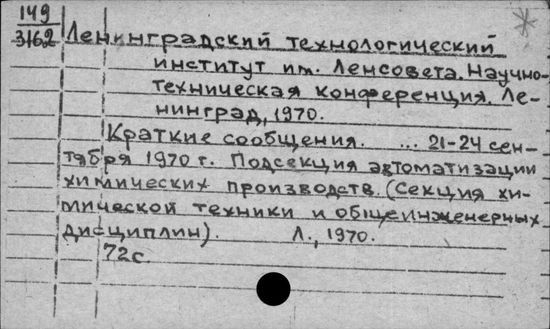 149
3162
Ленинградский технологический
институт им. Ленсовета. Научно-
техническая конференция. Ле-
нинград, 1970.
Краткие сообщения. ... 21-24 сен-
тября 1970 г. Подсекция автоматизации
химических производств. (Секция хи-
мической техники и общеинженерных
дисциплин). Л., 1970.
72с.